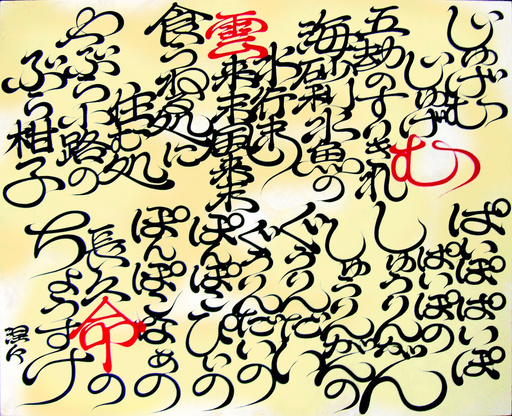 じゅげむ
じゅげむ
五劫のすりきれ
海砂利水魚の
水行末
雲来末風来末
食うねる処に
住む処
やぶら小路の
ぶら柑子
ぱいぽぱいぽ
ぱいぽの
しゅうりんがん
しゅうりんがんの
ぐうりんだい
ぐうりんだいの
ぽんぽこぴいの
ぽんぽこなあの
長久命の
ちょうすけ